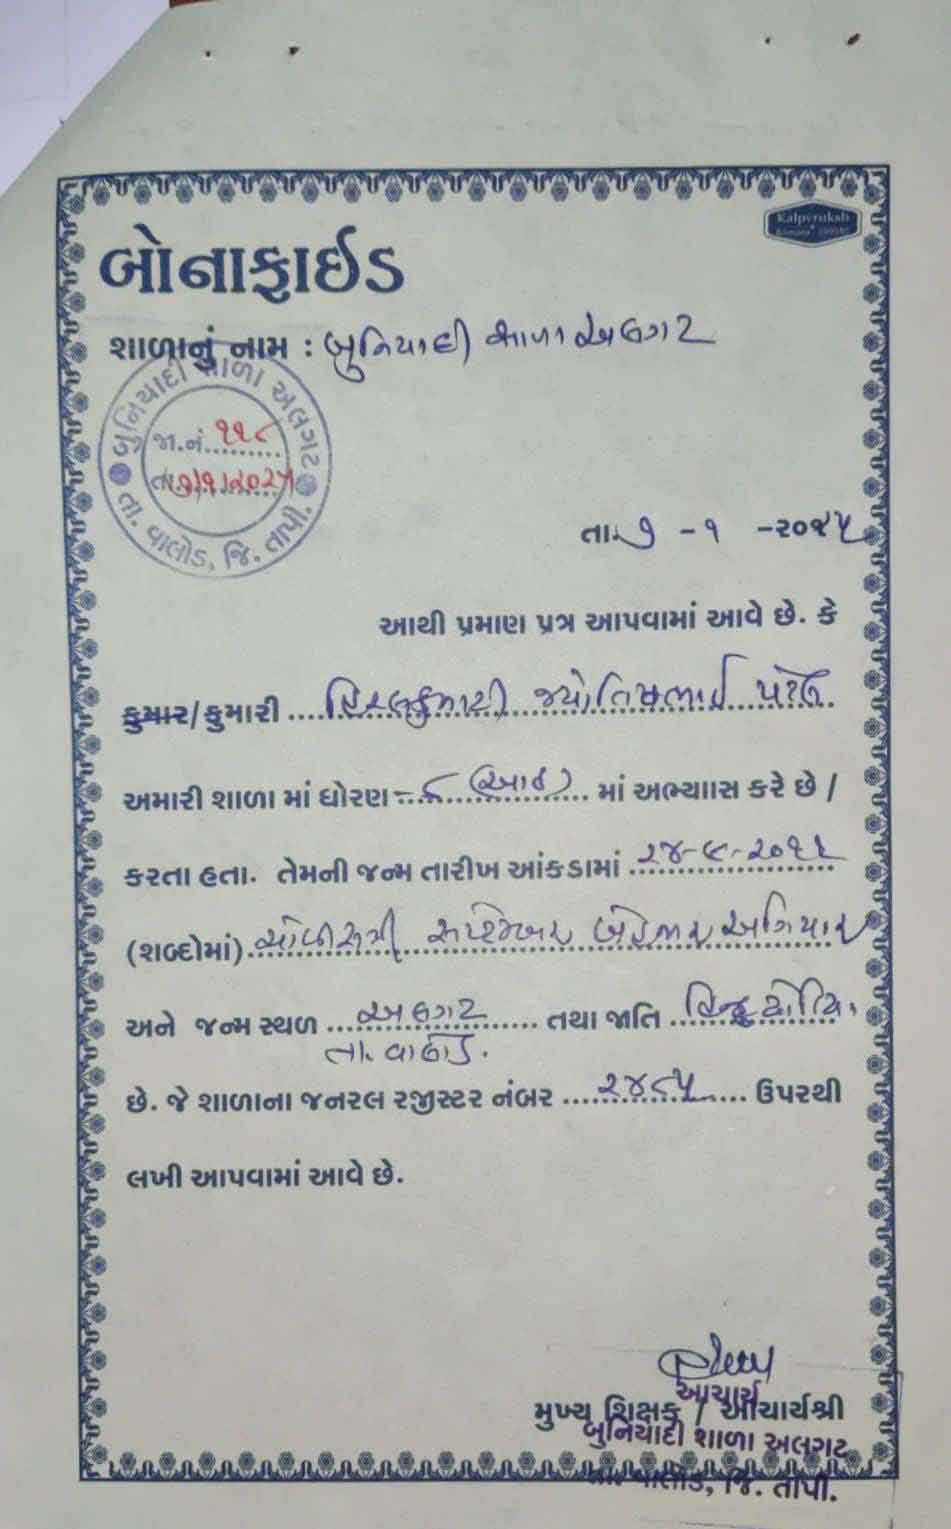 Kalpvruksh
બોનાફાઈડ
શાળાનું નામ : બુનિયાદી શાળા અલગટ
બુનિયાદી શાળા અલગટ
જા.નં. ૧૧૮
તા. ૭/૧/૨૦૨૫
તા. વાલોડ, જિ. તાપી.
તા. ૭ - ૧ - ૨૦૨૫
આથી પ્રમાણ પત્ર આપવામાં આવે છે. કે
કુમાર/કુમારી જ્યોતિષભાઈ પટેલ
અમારી શાળા માં ધોરણ ૮ (આઠ) માં અભ્યાાસ કરે છે /
કરતા હતા. તેમની જન્મ તારીખ આંકડામાં ૨૪-૯-૨૦૧૧
(શબ્દોમાં) ચોવીસમી સપ્ટેમ્બર બેહજાર અગિયાર
અને જન્મ સ્થળ અલગટ તથા જાતિ હિન્દુ ધોડિયા
તા. વાલોડ.
છે. જે શાળાના જનરલ રજીસ્ટર નંબર ૨૪૮૫ ઉપરથી
લખી આપવામાં આવે છે.
આચાર્ય
મુખ્ય શિક્ષક / આચાર્યશ્રી
બુનિયાદી શાળા અલગટ
તા. વાલોડ, જિ. તાપી.